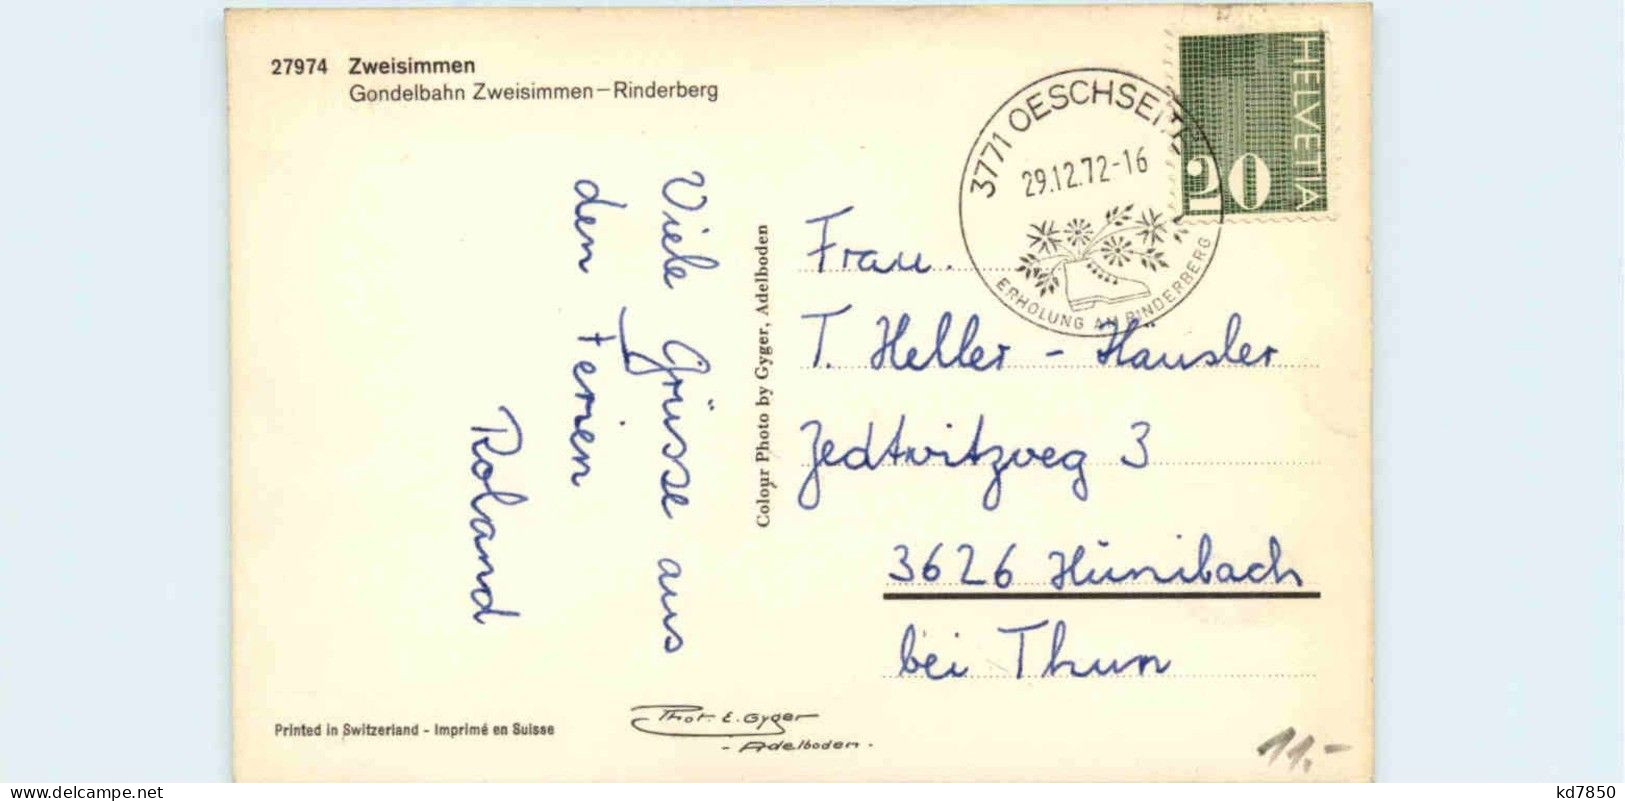 27974 Zweisimmen
Gondelbahn Zweisimmen–Rinderberg
Viele Grüsse aus
den Ferien
Roland
Colour Photo by Gyger, Adelboden
3771 OESCHSEITE
29.12.72-16
ERHOLUNG AM RINDERBERG
HELVETIA
20
Frau.
T. Heller - Häusler
Zedtwitzweg 3
3626 Hünibach
bei Thun
Printed in Switzerland - Imprimé en Suisse
Phot. E. Gyger
- Adelboden.
11.-
delcampe.net
kd7850